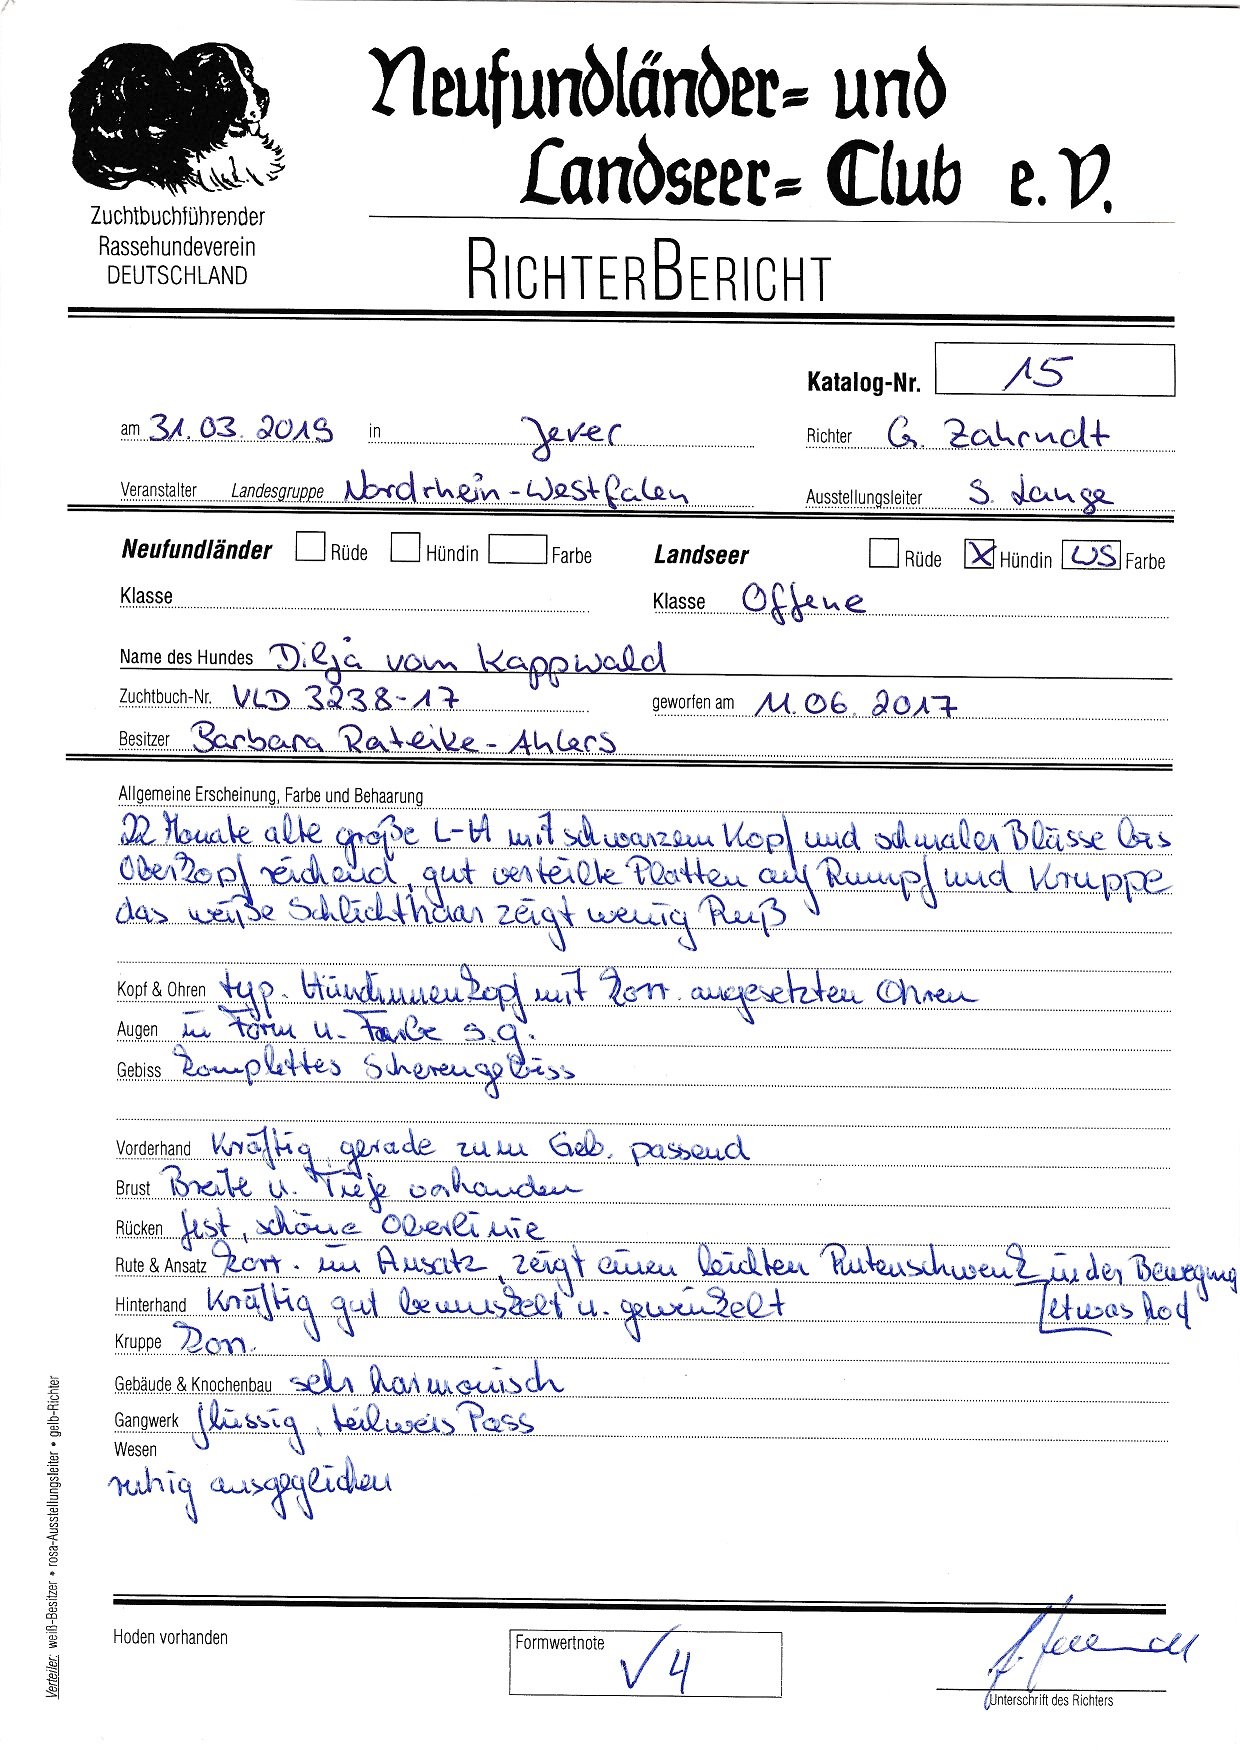 Neufundländer= und
Landseer= Club e. V.
Zuchtbuchführender
Rassehundeverein
DEUTSCHLAND
RICHTERBERICHT
Katalog-Nr. 15
am 31.03.2019 in Jever Richter G. Zahrndt
Veranstalter Landesgruppe Nordrhein-Westfalen Ausstellungsleiter S. Lange
Neufundländer Rüde Hündin Farbe Landseer Rüde X Hündin WS Farbe
Klasse Klasse Offene
Name des Hundes Diljá vom Kappwald
Zuchtbuch-Nr. VLD 3238-17 geworfen am 11.06.2017
Besitzer Barbara Rateike-Ahlers
Allgemeine Erscheinung, Farbe und Behaarung
22 Monate alte große L-H mit schwarzem Kopf und schmaler Blässe bis
Oberkopf reichend, gut verteilte Platten auf Rumpf und Kruppe
das weiße Schlichthaar zeigt wenig Ruß
Kopf & Ohren typ. Hündinnenkopf mit korr. angesetzten Ohren
Augen in Form u. Farbe s.g.
Gebiss komplettes Scherengebiss
Vorderhand Kräftig, gerade zum Geb. passend
Brust Breite u. Tiefe vorhanden
Rücken fest, schöne Oberlinie
Rute & Ansatz korr. im Ansatz, zeigt einen leichten Rutenschwenk in der Bewegung
etwas hoch
Hinterhand Kräftig gut bemuskelt u. gewinkelt
Kruppe korr.
Gebäude & Knochenbau sehr harmonisch
Gangwerk flüssig, teilweis Pass
Wesen
ruhig ausgeglichen
Hoden vorhanden
Formwertnote V4
Unterschrift des Richters
Verteiler: weiß-Besitzer • rosa-Ausstellungsleiter • gelb-Richter